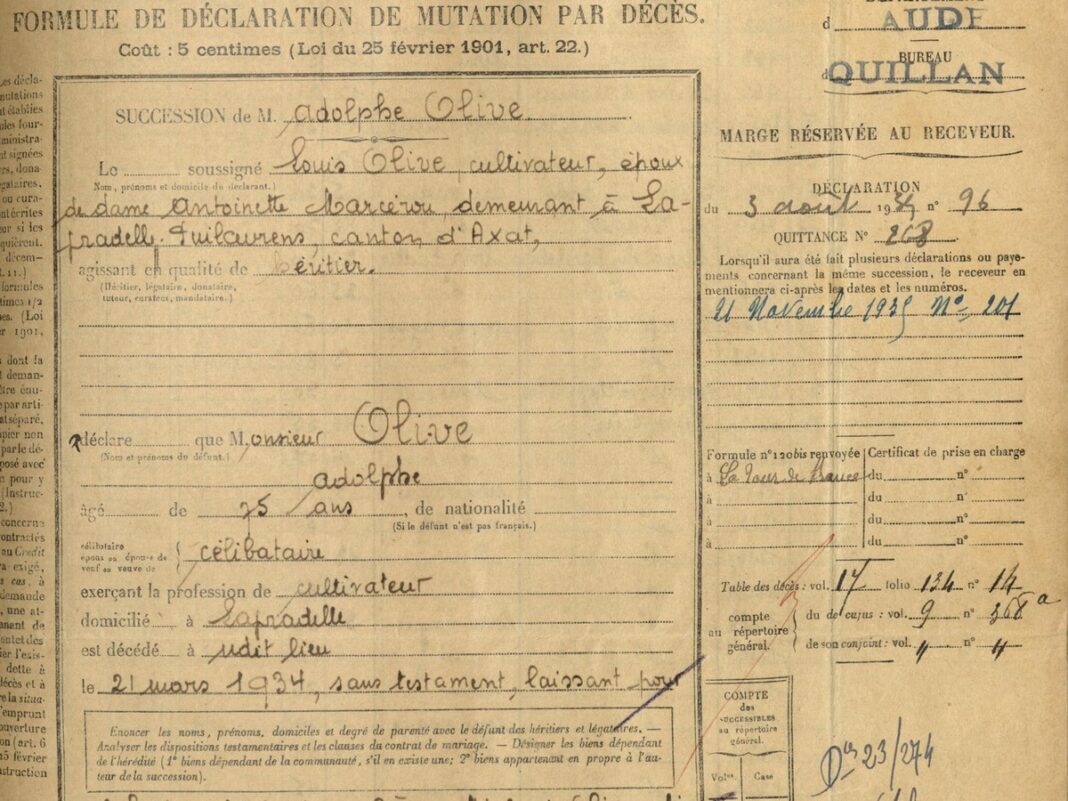 FORMULE DE DÉCLARATION DE MUTATION PAR DÉCÈS.
Coût : 5 centimes (Loi du 25 février 1901, art. 22.)
SUCCESSION de M. Adolphe Olive
Le soussigné Louis Olive, cultivateur, époux
Nom, prénoms et domicile du déclarant.)
de dame Antoinette Marcérou, demeurant à La-
pradelle-Puilaurens, canton d'Axat,
agissant en qualité de héritier.
(Héritier, légataire, donataire,
tuteur, curateur, mandataire.)
déclare que Monsieur Olive
(Nom et prénoms du défunt.)
adolphe
âgé de 75 ans, de nationalité
(Si le défunt n'est pas français.)
célibataire
époux ou épouse de
veuf ou veuve de
célibataire
exerçant la profession de cultivateur
domicilié à Lapradelle
est décédé à udit lieu
le 21 mars 1934, sans testament, laissant pour
Énoncer les noms, prénoms, domiciles et degré de parenté avec le défunt des héritiers et légataires. —
Analyser les dispositions testamentaires et les clauses du contrat de mariage. — Désigner les biens dépendant
de l'hérédité (1° biens dépendant de la communauté, s'il en existe une; 2° biens appartenant en propre à l'au-
teur de la succession).
d AUDE
BUREAU
d QUILLAN
MARGE RÉSERVÉE AU RECEVEUR.
DÉCLARATION
du 3 août 193 n° 96
QUITTANCE N° 268
Lorsqu'il aura été fait plusieurs déclarations ou paye-
ments concernant la même succession, le receveur en
mentionnera ci-après les dates et les numéros.
21 Novembre 1935 N° 201
Formule n° 120 bis renvoyée
à La Tour de France
à
à
à
Certificat de prise en charge
du n°
du n°
du n°
du n°
Table des décès : vol. 17 folio 134 n° 14
compte
au répertoire
général.
du de cujus : vol. 9 n° 368 a
de son conjoint : vol. " n° "
COMPTE
des
SUCCESSIBLES
au répertoire
général.
Vol. Case
23/274